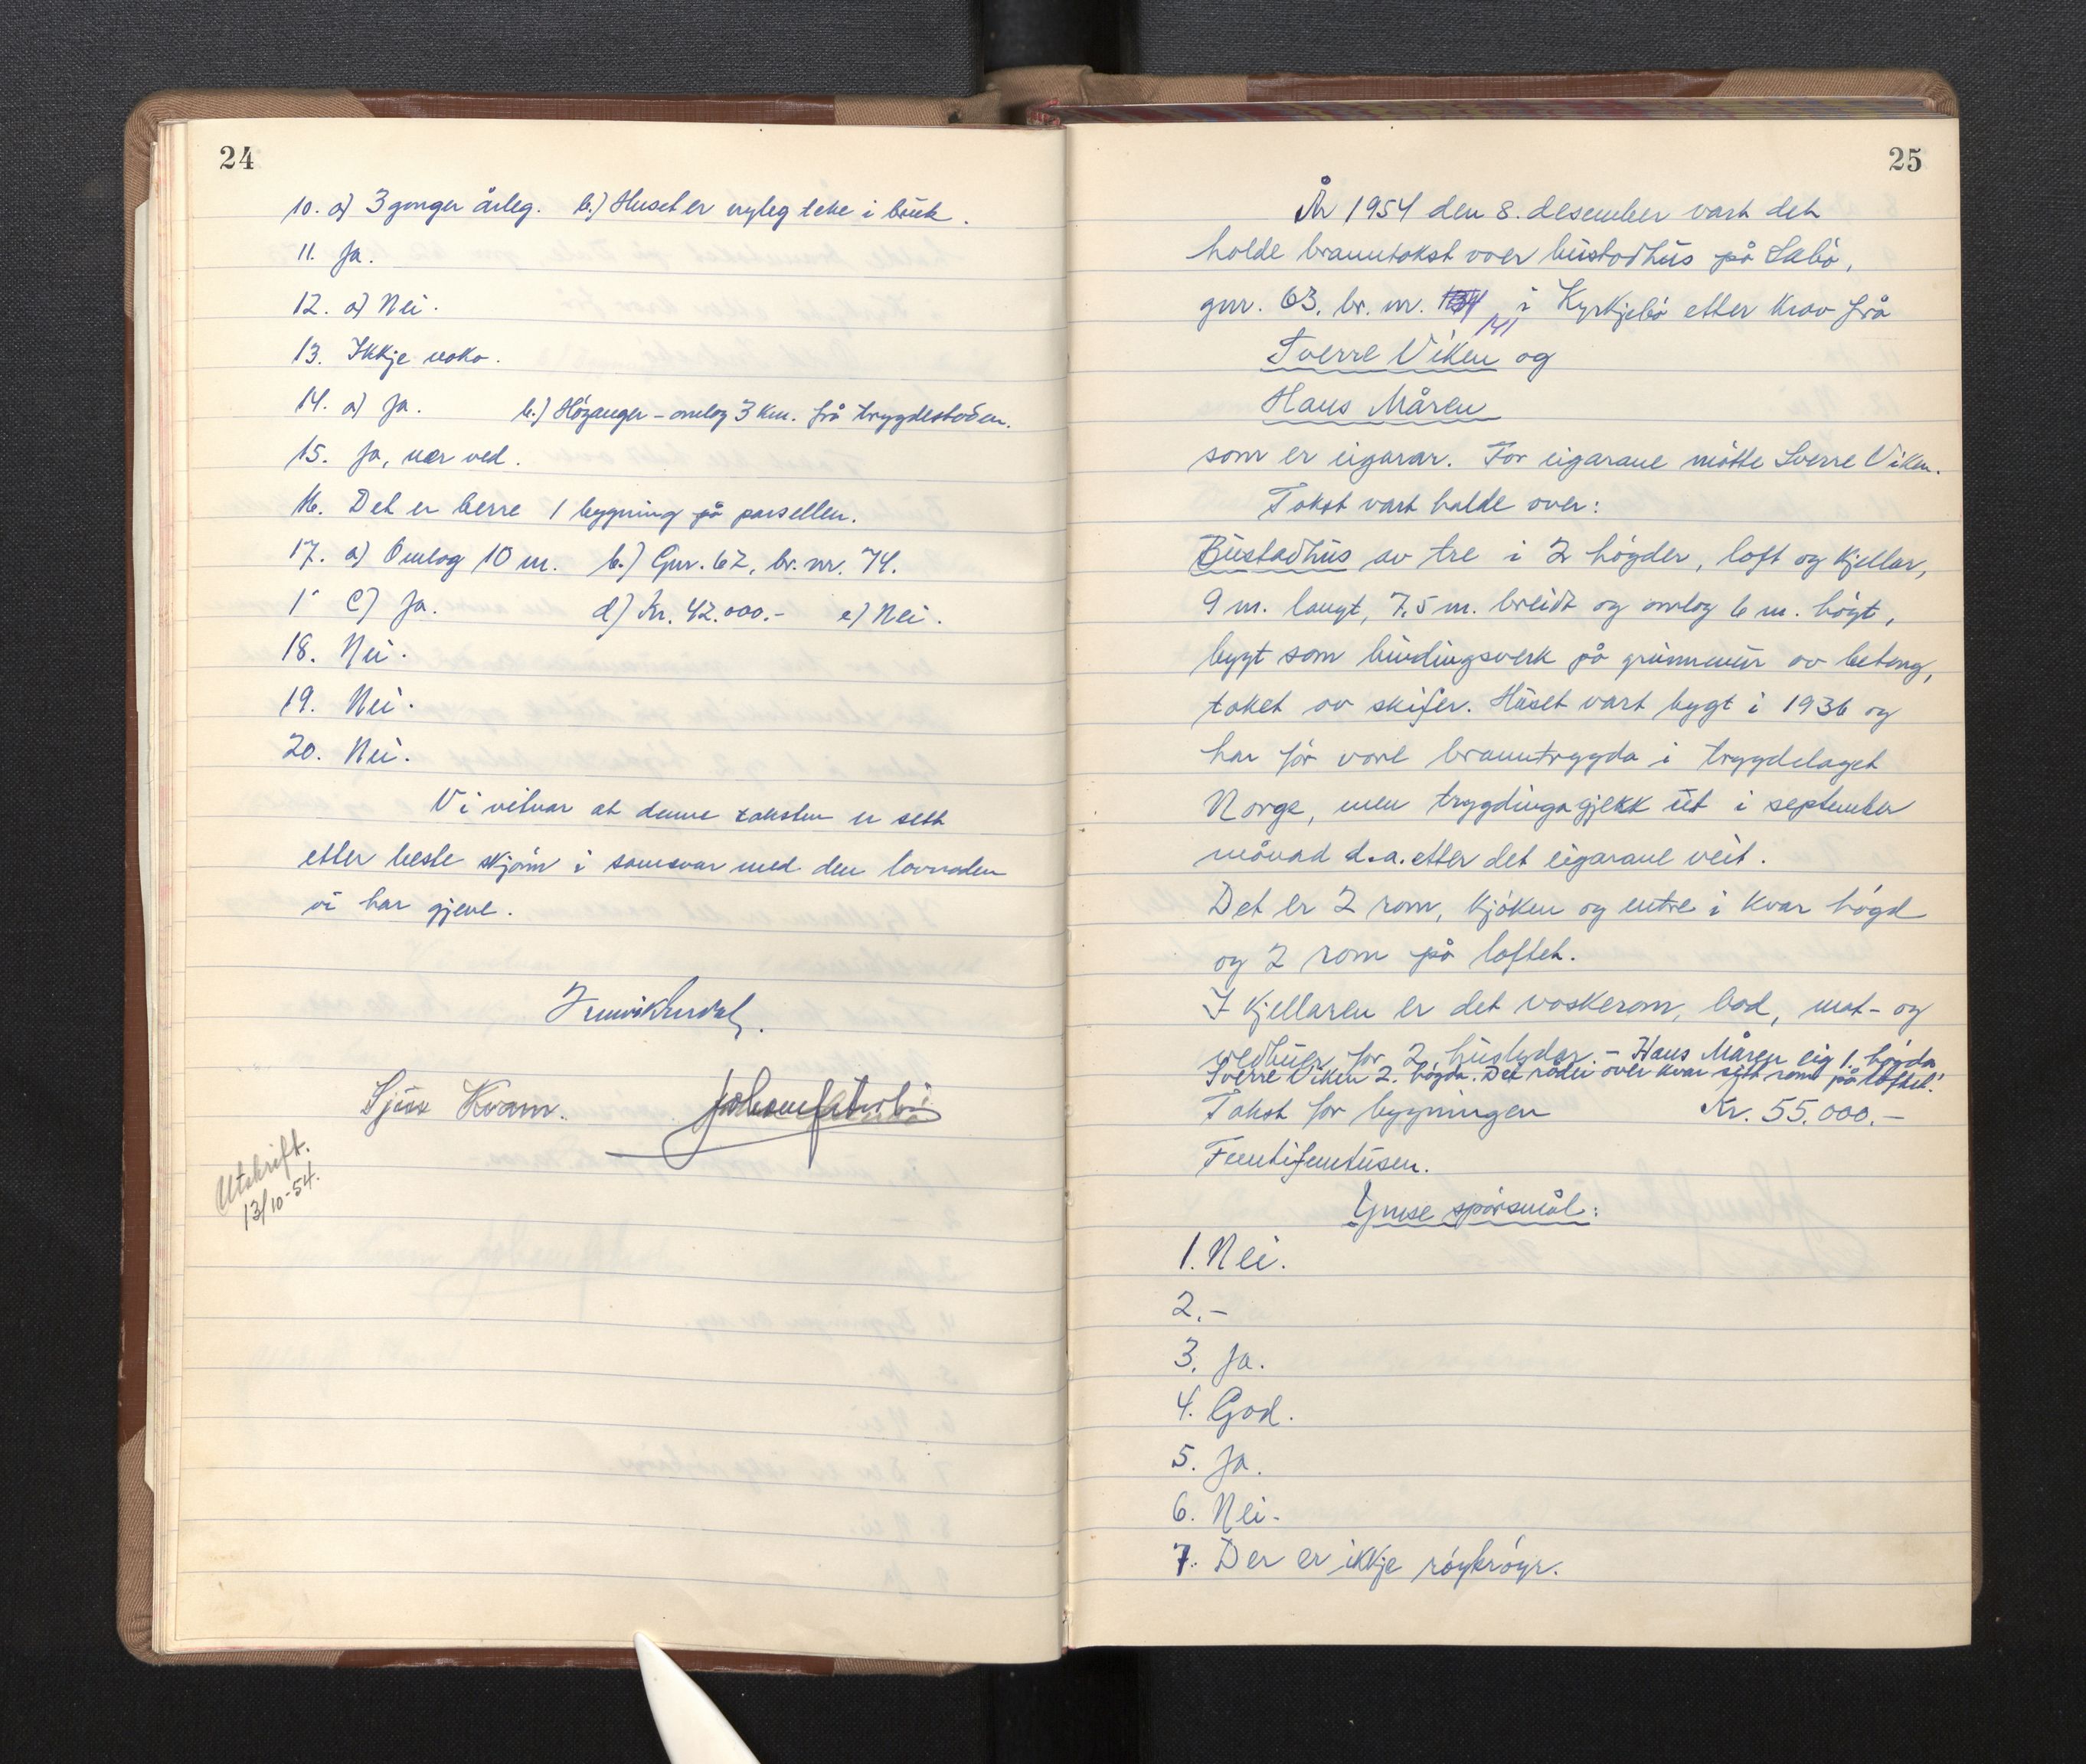 24
10. a) 3 gonger årleg. b.) Huset er nyleg teke i bruk.
11. Ja.
12. a) Nei.
13. Ikkje noko.
14. a) Ja. b.) Høyanger - omlag 3 km. frå trygdestaden.
15. Ja, nær ved.
16. Det er berre 1 bygning på parsellen.
17. a) Omlag 10 m. b.) Gnr. 62, br. nr. 74.
1" c) Ja. d) Kr. 42.000.- e) Nei.
18. Nei.
19. Nei.
20. Nei.
Vi vitnar at denne taksten er sett
etter beste skjøn i samsvar med den lovnaden
vi har gjeve.
Sjur Kvam.
Utskrift.
13/10-54.
25
År 1954 den 8. desember vart det
halde branntakst over bustadhus på Sæbø,
gnr. 63, br. nr. 141 i Kyrkjebø etter krav frå
Sverre Viken og
Hans Måren
som er eigarar. For eigarane møtte Sverre Viken.
Takst vart halde over:
Bustadhus av tre i 2 høgder, loft og kjellar,
9 m. langt, 7,5 m. breidt og omlag 6 m. høgt,
bygt som bindingsverk på grunnmur av betong,
taket av skifer. Huset vart bygt i 1936 og
har før vore branntrygda i trygdelaget
Norge, men trygdinga gjekk ut i september
månad d.a. etter det eigarane veit.
Det er 2 rom, kjøken og entre i kvar høgd
og 2 rom på loftet.
I kjellaren er det vaskerom, bad, mat- og
vedbuer for 2 huslydar. - Hans Måren eig 1. høgda
Sverre Viken 2. høgda. Dei råder over kvar sitt rom på loftet.
Takst for bygningen Kr. 55.000.-
Femtifemtusen.
Ymse spørsmål:
1. Nei.
2. -
3. Ja.
4. God.
5. Ja.
6. Nei.
7. Der er ikkje røykrøyr.